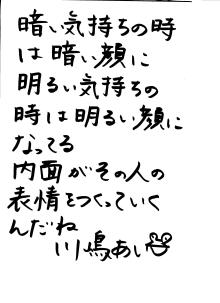 暗い気持ちの時
は暗い顔に
明るい気持ちの
時は明るい顔に
なってる
内面がその人の
表情をつくっていく
んだね
川嶋あい